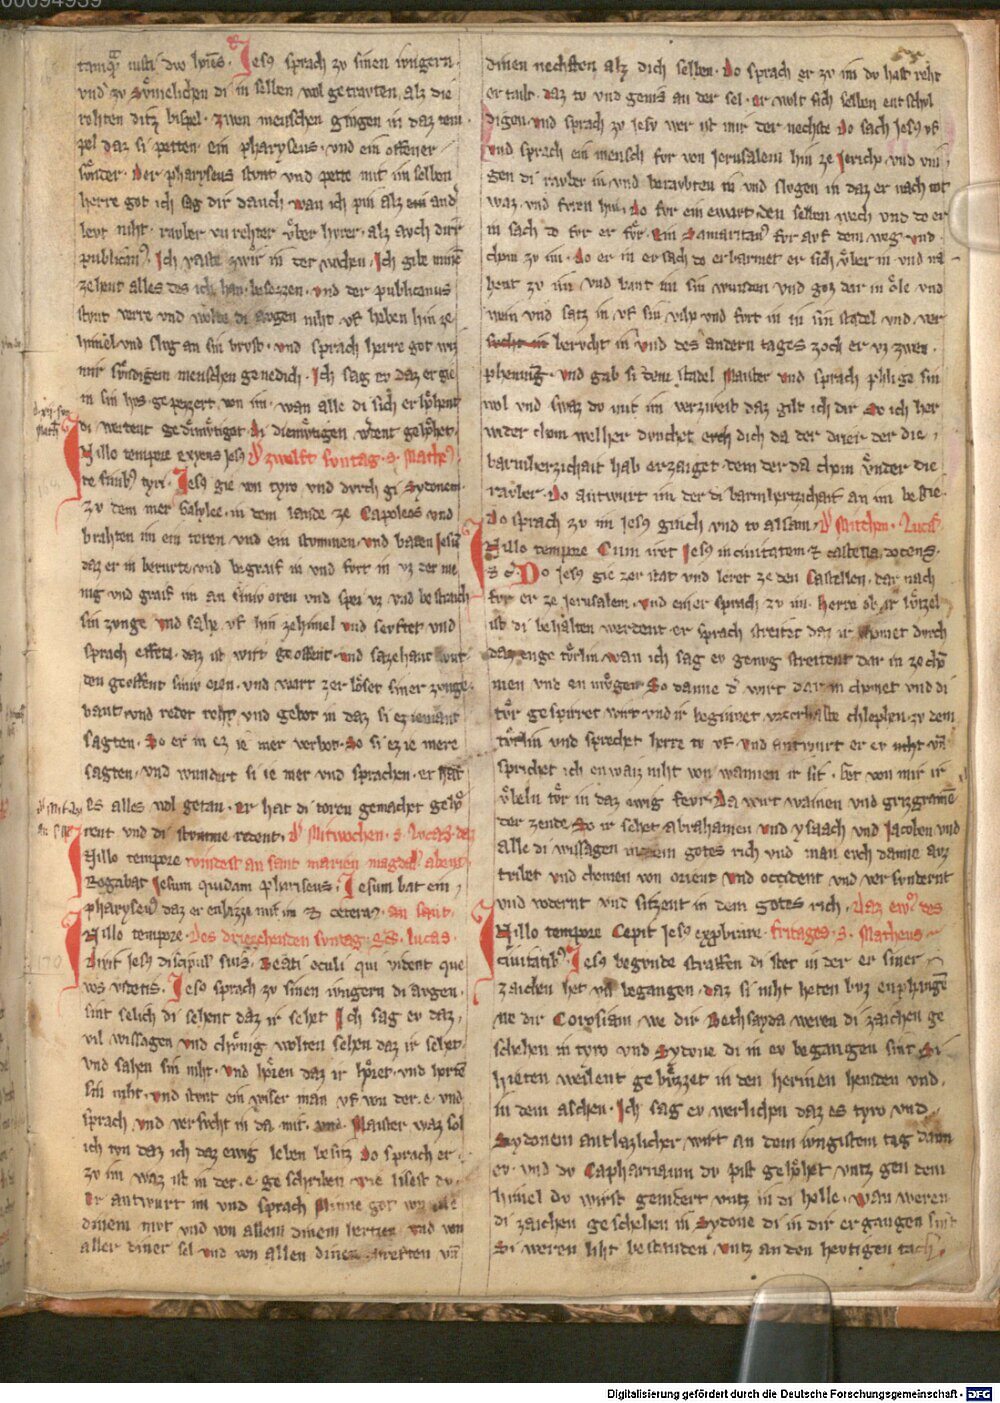 00094939
55
iusti duo homines. Jesus sprach zv sinen iungern.
vnd zv svmelichen di in selben wol getravten. alz die
rehten ditz bispel. zwen menschen giengen in daz tem
pel daz si petten. ein pharyseus. vnd ein offener
svnder. Der pharyseus stvnt vnd pette mit im selben
herre got ich sag dir danch wan ich pin alz ein and
levt niht. ravber vnrehter vber hvrer. alz avch dirr
publicanus. Ich vaste zwir in der wochen. Ich gibe minen
zehent alles des ich han besezzen. vnd der publicanus
stvnt verre vnd wolde di avgen niht vf heben hin ze
himel vnd slvg an sin brvst. vnd sprach herre got wiz
mir svndigem menschen genedich. Ich sag ev daz er gie
in sin hvs gepezzert von im. wan alle di sich erhohent
di werdent gediemvtiget di diemvtigen werdent gehohet.
In illo tempore exyens Jesus Der zwelft svntag. s. Matheus
te finibus tyri. Jesus gie von tyro vnd dvrch gi Sydonem
zv dem mer Galylee. in dem lande ze Capoleos vnd
brahten im ein toren vnd ein stvmmen. vnd baten Jesum
daz er in berurte. vnd begraif in vnd fvrt in vz der me
nig vnd graif im an siniv oren vnd spei vz vnd bestraich
sin zvnge vnd sahe vf hin ze himel vnd sevftet vnd
sprach effeta. daz ist wirt geoffent. vnd sazehant wur
den geoffent siniv oren. vnd wart zerloset siner zvnge
bant. vnd redet reht vnd gebot in daz si ez iemant
sagten. So er in ez ie mer verbot. So si ez ie mere
sagten. vnd wundert si ie mer vnd sprachen. er hat
es alles wol getan. Er hat di toren gemachet gehor
rent vnd di stvmme redent. Der Mitwochen. s. Lucas. daz
In illo tempore vindest an sant marien magdalen abent
Rogabat Jesum quidam phariseus. Jesum bat ein
pharyseus daz er enbizze mit im et cetera. an sant
In illo tempore. Des driezehenden svntag. s. Lucas.
Dixit Jesus discipulis suis. Beati oculi qui vident que
vos videtis. Jesus sprach zv sinen ivngern di avgen.
sint selich di sehent daz ir sehet Ich sag ev daz,
vil wissagen vnd chvnig wolten sehen daz ir sehet.
vnd sahen sin niht. vnd horen daz ir horet. vnd horten
sin niht. vnd stvnt ein wiser man vf von der. e. vnd
sprach vnd versvcht in da mit. vnd. Maister waz sol
ich tvn daz ich daz ewig leben besitz Do sprach er.
zv im waz ist in der. e. geschriben wie lisest dv.
Er antwurt im vnd sprach Minne got von alle
dinem mvt vnd von allem dinem hertzen vnd von
aller diner sel vnd von allen dinen chreften vnd
dinen nechsten alz dich selben. Do sprach er zv im dv hast reht
ertailt. daz tv vnd genis an der sel. er wolt sich selben entschvl
digen. vnd sprach zv Jesv wer ist mir der nechste Do sach Jesus vf
vnd sprach ein mensch fvr von Jerusalem hin ze Jericho. vnd vin
gen di ravber in. vnd beravbten in vnd slvgen in daz er nach tot
waz. vnd fvren hin. Do fvr ein ewart. den selben wech vnd do er
in sach do fvr er fvr. Ein Samaritanus fvr avf dem weg. vnd.
chom zv im. Do er in ersach do erbarmet er sich vber in vnd na
hent zv im vnd bant im sin wunden vnd goz dar in ole vnd
wein vnd satz in vf sin vihe vnd fvrt in in sin stadel vnd ver
svcht in bervcht in vnd des andern tages zoch er vz zwen.
phenning. vnd gab si dem stadel Maister vnd sprach phlige sin
wol vnd swaz dv mit im verzirest daz gilt ich dir So ich her
wider chom welher dvnchet erch dich da der drier der die,
barmherzichait hab erzaiget. dem der da chom vnder die
ravber. Do antwurt im der di barmhertzichait an im begie.
Do sprach zv im Jesus ginch vnd tv alsam. Der Mitchen. Lucas
In illo tempore Cum iret Jesus in ciuitatem et castella docens.
et cetera. Do Jesus gie zer stat vnd leret ze den Castellen. dar nach
fvr er ze Jerusalem. vnd einer sprach zv im. herre ob ir wenzel
ist di behalten werdent. er sprach streitet daz ir chomet dvrch
daz enge torlin. wan ich sag ev genvg streitent dar in ze cho
men vnd en mvgen. So danne der wirt dar in chomet vnd di
tvr gesperret wirt vnd ir beginnet vzzerhalbe chlophen. zv dem
torlin vnd sprechet herre tv vf. vnd antwurt er er niht vnd
sprichet ich enwaiz niht von wannen ir sit. Get von mir ir
vbeln tor in daz ewig fevr. Da wirt wainen vnd grizgramen
der zende So ir sehet abrahamen vnd ysaach vnd Jacoben vnd
alle di wissagen in dem gotes rich vnd man evch danne avz
tribet vnd chomen von orient vnd occident vnd ver svndernt
vnd nordernt vnd sitzent in dem gotes rich. Daz ewangelium des
In illo tempore Cepit Jesus exprobrare. fritages. s. Matheus
ciuitatibus. Jesus begvnde straffen di stet in der er siner
zaichen het vil begangen. daz si niht heten bvz enphangen
We dir Corosiam we dir Bethsayda weren di zaichen ge
schehen in tyro vnd Sydone di in ev begangen sint Si
hieten weilent gebvzzet in den herinen hemden vnd.
in dem aschen. Ich sag ev werlichen daz es tyro vnd
Sydonem antlazlicher wirt an dem ivngistem tag dann
ev. vnd dv Capharnaum dv pist gehohet vntz gen dem
himel dv wirst genidert vntz in di helle. Wan weren
di zaichen geschehen in Sydone di in dir ergangen sint
Si weren liht bestanden vntz an den hevtigen tach.
Digitalisierung gefördert durch die Deutsche Forschungsgemeinschaft - DFG